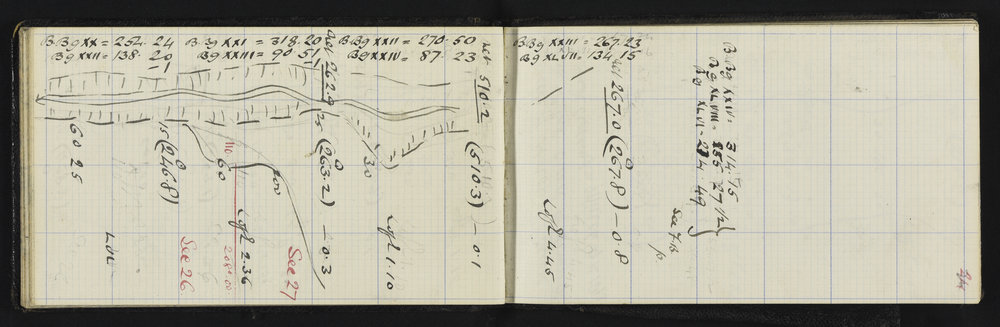 B.Bg XX = 254. 24
Bg XXII = 138. 20
– 1
B.Bg XXI = 318. 20
Bg XXIII = 90 51
– 1
B.Bg XXII = 270. 50
Bg XXIV = 87 23
60 25
15 (246.8)
60
110
100
act 262.9
25 (263.2) – 0.3
30
act 510.2
(510.3) – 0.1
See 26
2.36
208.00
See 27
1.10
B.Bg XXIII = 267. 23
Bg XLVII = 134. 15
267.0 (267.8) – 0.8
4.45
B Bg XXIV = 314. 75
Bg XLVIII = 27 1/2
Bg XLVI = 49
see
24